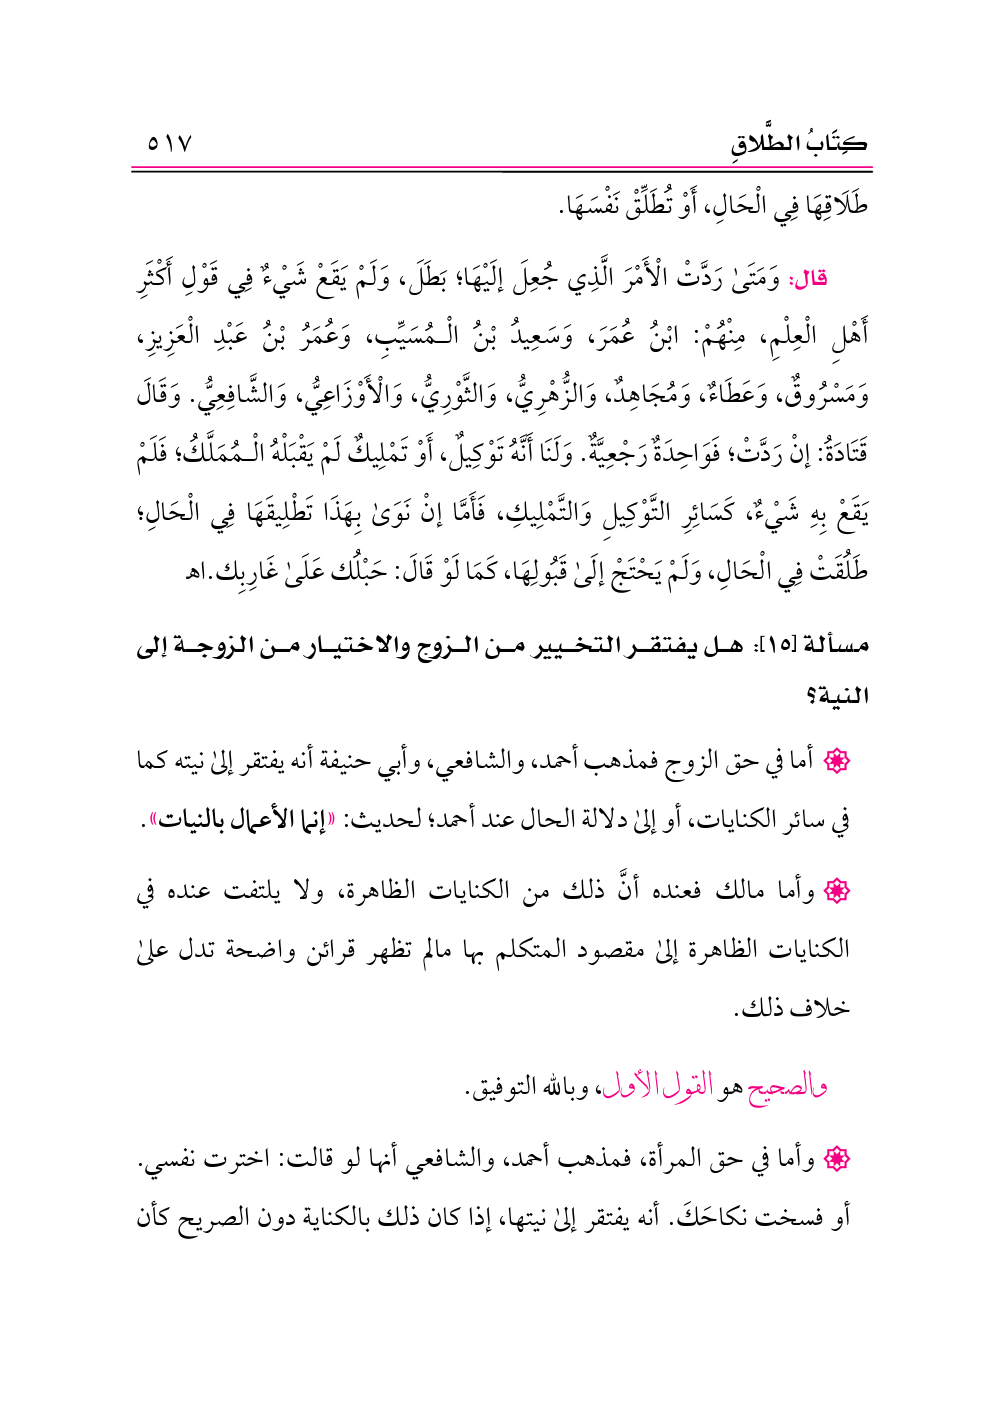 كِتَابُ الطَّلَاقِ ٥١٧
طَلَاقِهَا فِي الْحَالِ، أَوْ تُطَلِّقْ نَفْسَهَا.
قال: وَمَتَىٰ رَدَّتْ الْأَمْرَ الَّذِي جُعِلَ إلَيْهَا؛ بَطَلَ، وَلَمْ يَقَعْ شَيْءٌ فِي قَوْلِ أَكْثَرِ
أَهْلِ الْعِلْمِ، مِنْهُمْ: ابْنُ عُمَرَ، وَسَعِيدُ بْنُ الْـمُسَيِّبِ، وَعُمَرُ بْنُ عَبْدِ الْعَزِيزِ،
وَمَسْرُوقٌ، وَعَطَاءٌ، وَمُجَاهِدٌ، وَالزُّهْرِيُّ، وَالثَّوْرِيُّ، وَالْأَوْزَاعِيُّ، وَالشَّافِعِيُّ. وَقَالَ
قَتَادَةُ: إنْ رَدَّتْ؛ فَوَاحِدَةٌ رَجْعِيَّةٌ. وَلَنَا أَنَّهُ تَوْكِيلٌ، أَوْ تَمْلِيكٌ لَمْ يَقْبَلْهُ الْـمُمَلَّكُ؛ فَلَمْ
يَقَعْ بِهِ شَيْءٌ، كَسَائِرِ التَّوْكِيلِ وَالتَّمْلِيكِ، فَأَمَّا إنْ نَوَىٰ بِهَذَا تَطْلِيقَهَا فِي الْحَالِ؛
طَلُقَتْ فِي الْحَالِ، وَلَمْ يَحْتَجْ إلَىٰ قَبُولِهَا، كَمَا لَوْ قَالَ: حَبْلُك عَلَىٰ غَارِبِك.اﻫ
مسألة [١٥]: هـل يفتقـر التخـيير مـن الـزوج والاختيـار مـن الزوجـة إلى
النية؟
أما في حق الزوج فمذهب أحمد، والشافعي، وأبي حنيفة أنه يفتقر إلىٰ نيته كما
في سائر الكنايات، أو إلىٰ دلالة الحال عند أحمد؛ لحديث: «إنما الأعمال بالنيات».
وأما مالك فعنده أنَّ ذلك من الكنايات الظاهرة، ولا يلتفت عنده في
الكنايات الظاهرة إلىٰ مقصود المتكلم بها مالم تظهر قرائن واضحة تدل علىٰ
خلاف ذلك.
والصحيح هو القول الأول، وبالله التوفيق.
وأما في حق المرأة، فمذهب أحمد، والشافعي أنها لو قالت: اخترت نفسي.
أو فسخت نكاحَكَ. أنه يفتقر إلىٰ نيتها، إذا كان ذلك بالكناية دون الصريح كأن